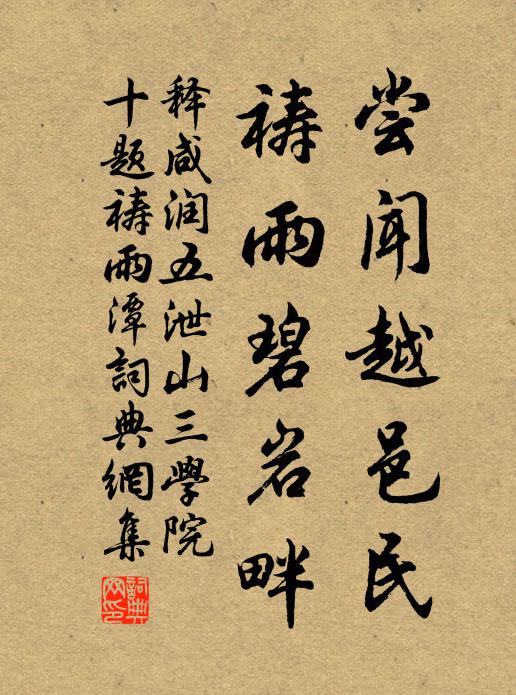 尝闻越邑民
祷雨碧岩畔
释咸润五泄山三學院
十题祷雨潭詞典網集
詞典
网印